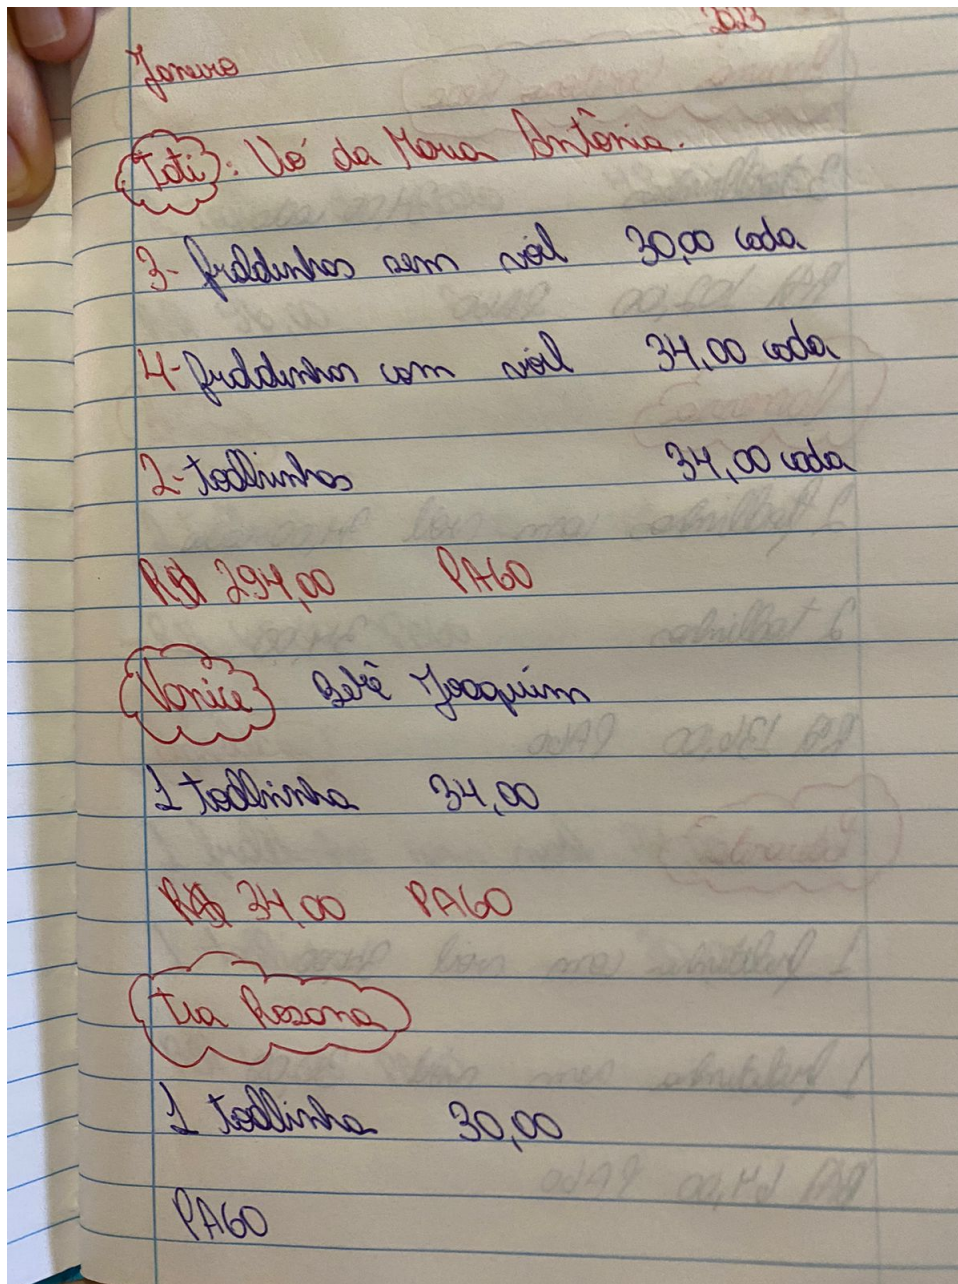 2023
Janeiro
Tati: Vó da Maria Antônia.
3- fraldinhas sem viól 30,00 cada
4- fraldinhas com viól 34,00 cada
2- toalhinhas 34,00 cada
R$ 294,00 PAGO
Vanice Bebê Joaquim
1 toalhinha 34,00
R$ 34,00 PAGO
tia Rosana
1 toalhinha 30,00
PAGO